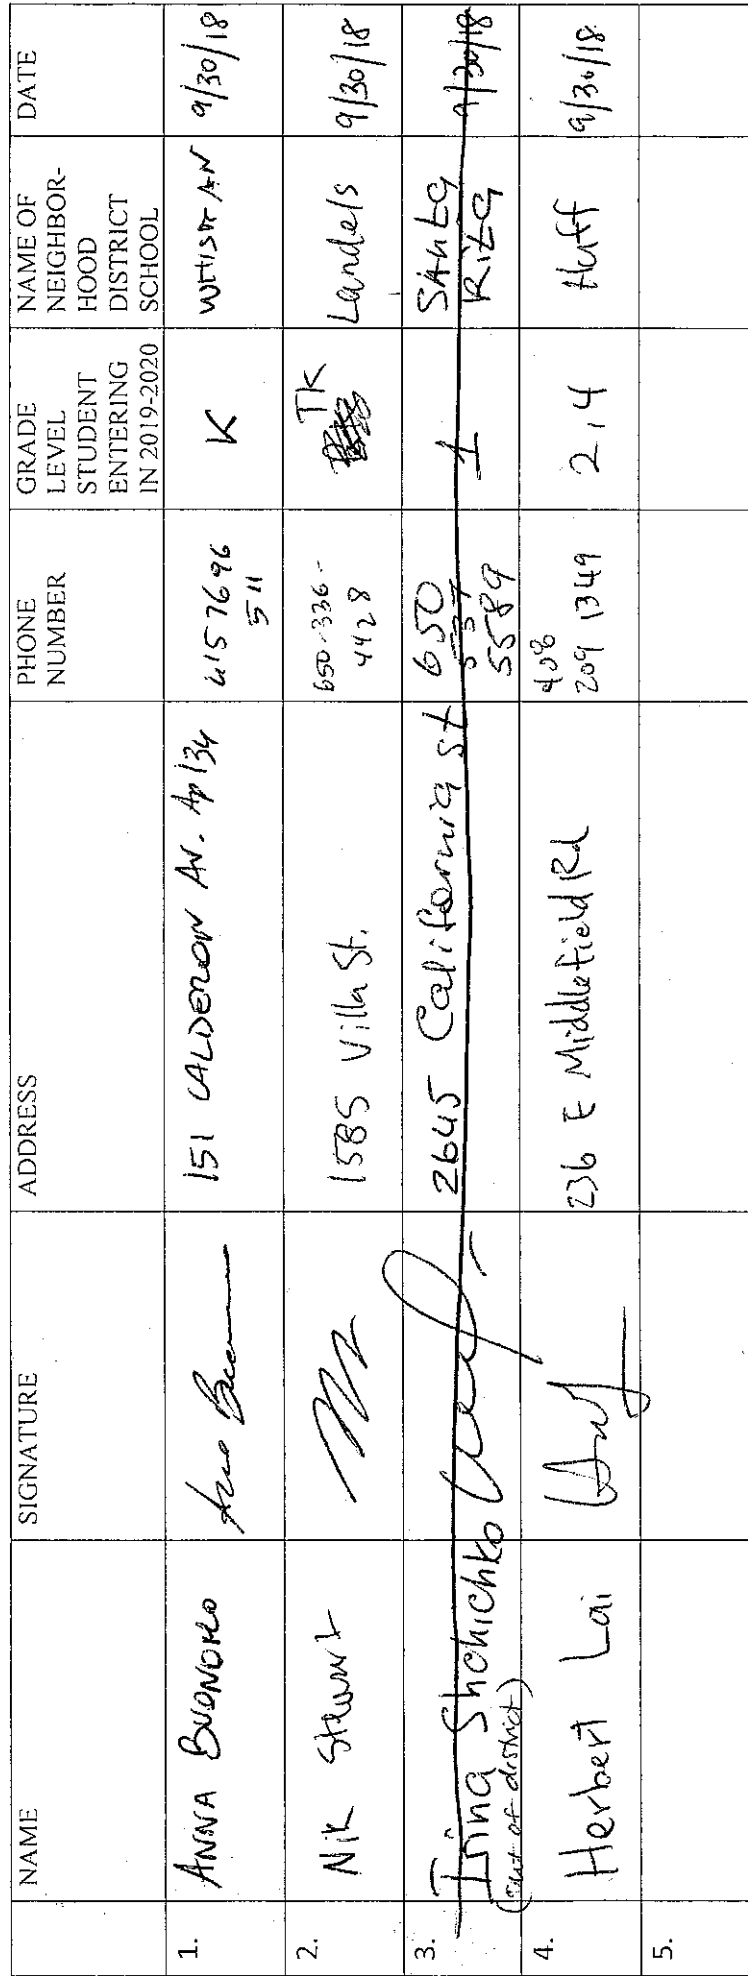 NAME
SIGNATURE
ADDRESS
PHONE
NUMBER
GRADE
LEVEL
STUDENT
ENTERING
IN 2019-2020
NAME OF
NEIGHBOR-
HOOD
DISTRICT
SCHOOL
DATE
1.
ANNA BUONOMO
151 CALDERON AV. Ap 134
4157696
511
K
WHISMAN
9/30/18
2.
Nik Stewart
1585 Villa St.
650-336-
4428
TK
Landels
9/30/18
3.
Irina Shohichko
(out of district)
2645 California st
650
537
5589
1
SAnta
Rita
9/30/18
4.
Herbert Lai
236 E Middlefield Rd
408
209 1349
2,4
Huff
9/30/18
5.